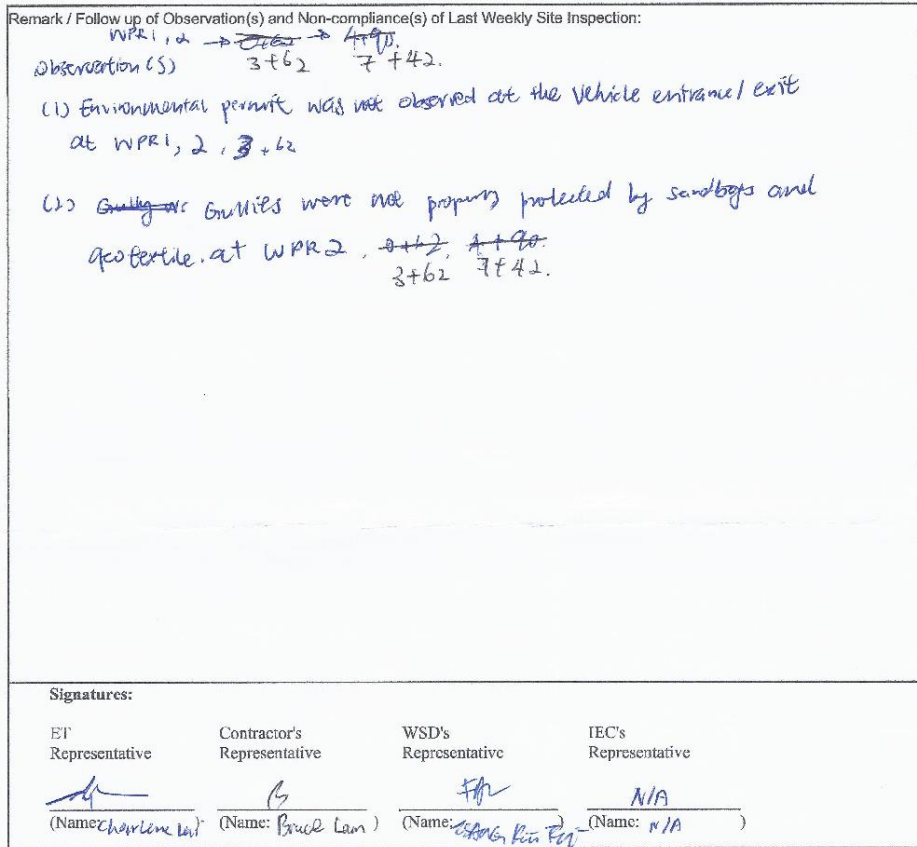 Remark / Follow up of Observation(s) and Non-compliance(s) of Last Weekly Site Inspection:
WPR1, 2 → 0+62 → 4+90.
Observation(s) 3+62 7+42.
(1) Environmental permit was not observed at the vehicle entrance/ exit
at WPR1, 2, 3+62
(2) Gully Gullies were not propery protected by sandbags and
geotextile. at WPR2, 0+62, 4+90.
3+62 7+42.
Signatures:
ET Contractor's WSD's IEC's
Representative Representative Representative Representative
N/A
(Name: Charlene (Name: Bruce Lam ) (Name: ) (Name: N/A )